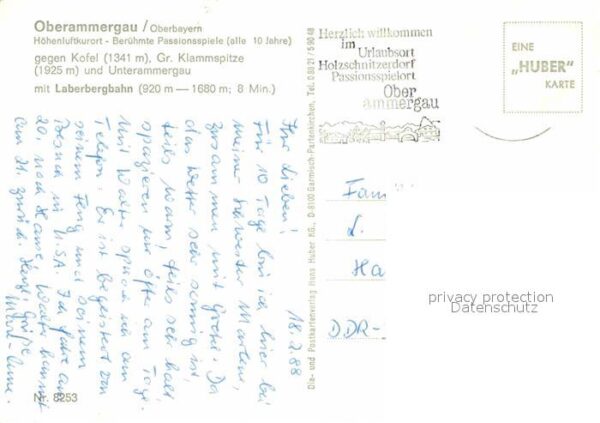 Oberammergau / Oberbayern
Höhenluftkurort - Berühmte Passionsspiele (alle 10 Jahre)
gegen Kofel (1341 m), Gr. Klammspitze
(1925 m) und Unterammergau
mit Laberbergbahn (920 m — 1680 m; 8 Min.)
Herzlich willkommen
im
Urlaubsort
Holzschnitzerdorf
Passionsspielort
Ober
ammergau
EINE
„HUBER"
KARTE
18.2.88
Ihr Lieben!
Für 10 Tage bin ich hier bei
meiner Schwester Martina,
zusammen mit Grete. Da
das Wetter sehr sonnig ist,
teils warm, teils sehr kalt
spazieren wir öfter am Tage.
Mit Walter sprach ich am
Telefon. Er ist begeistert von
seinem Flug und seinem
Besuch in USA. Ich fahre am
20. nach Hause, Walter kommt
am 21. zurück. Herzl. Grüße
Fam
L.
Ha
DDR-
Dia- und Postkartenverlag Hans Huber KG., D-8100 Garmisch-Partenkirchen, Tel. 0 88 21 / 5 90 48
Nr. 8253
privacy protection
Datenschutz